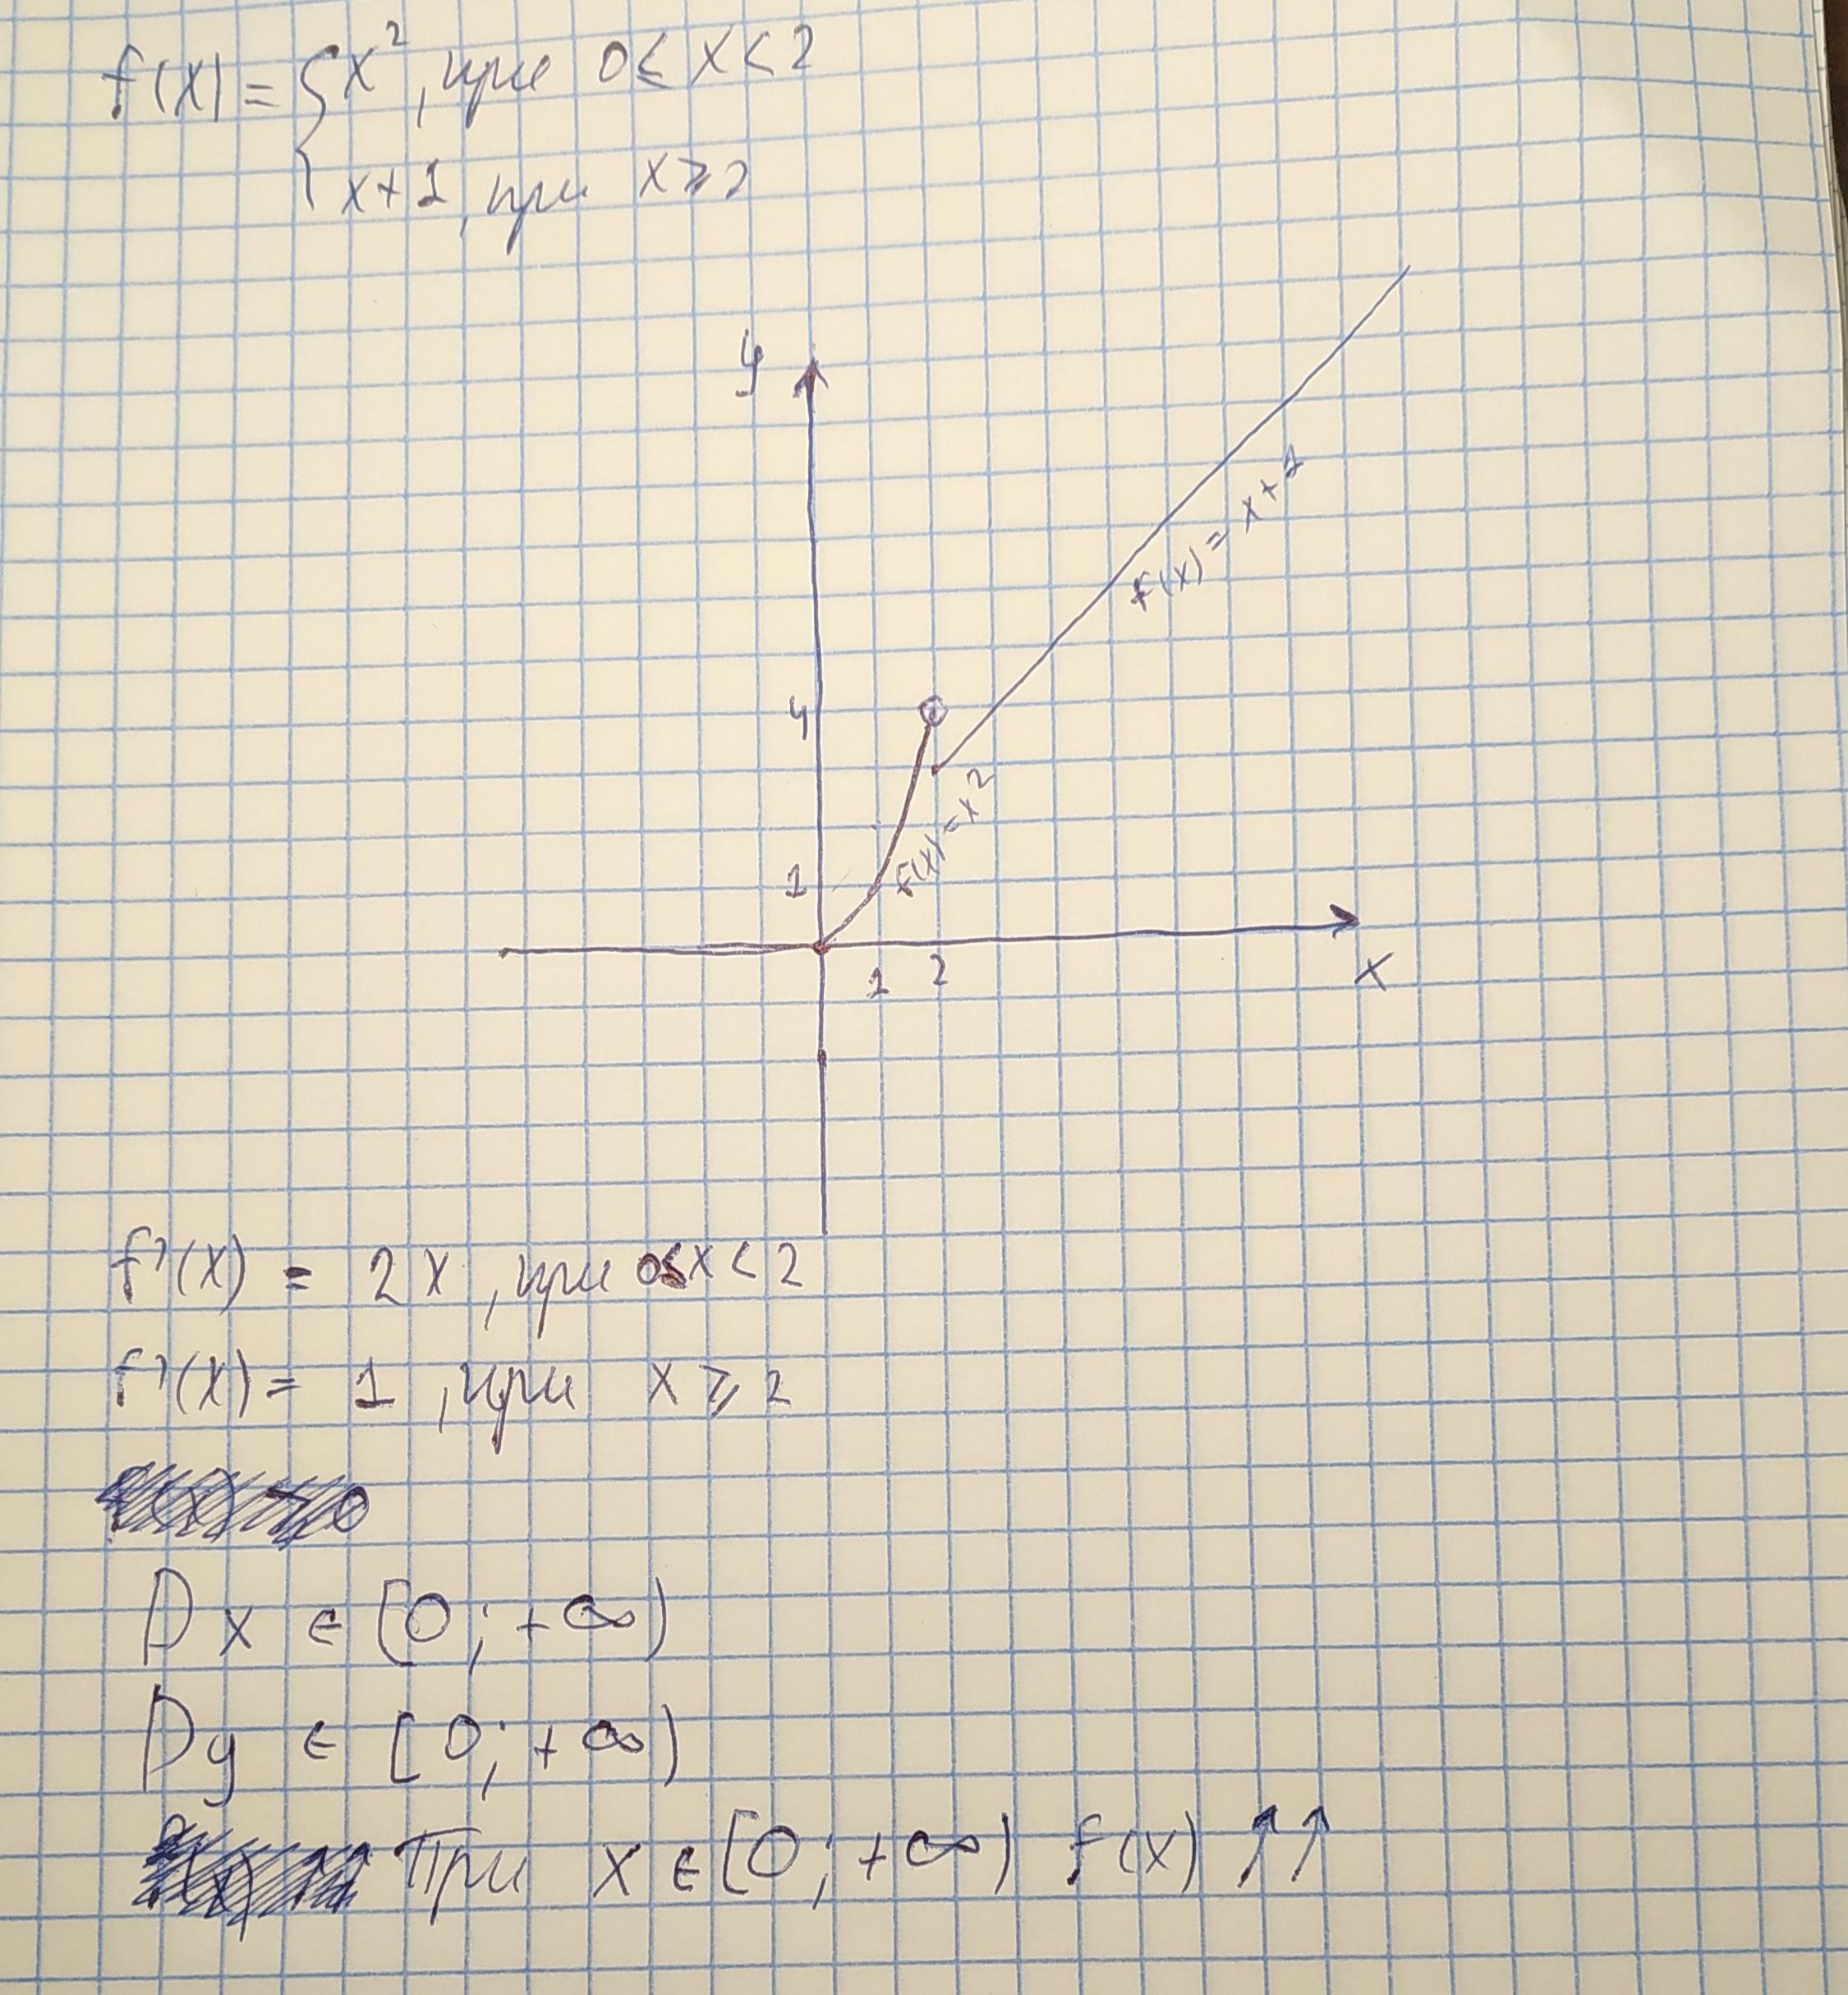 f(x) = { x², при 0 ≤ x < 2
x + 1, при x ≥ 2
y
f(x) = x + 1
4
f(x) = x²
1
1 2
x
f'(x) = 2x, при 0 ≤ x < 2
f'(x) = 1, при x ≥ 2
D x ∈ [0; +∞)
D y ∈ [0; +∞)
При x ∈ [0; +∞) f(x) ↑↑